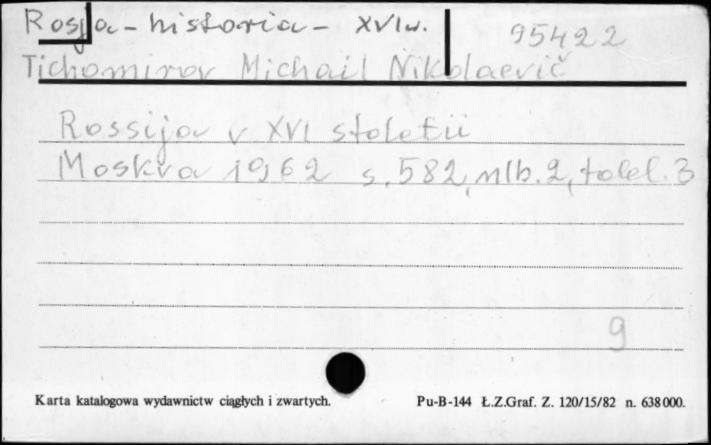 Rosja - historia - XVI w. 95422
Tichomirov Michail Nikolaevič
Rossija v XVI stoletii
Moskva 1962 s. 582, nlb. 2, tabl. 3
9
Karta katalogowa wydawnictw ciągłych i zwartych. Pu-B-144 Ł.Z.Graf. Z. 120/15/82 n. 638000.